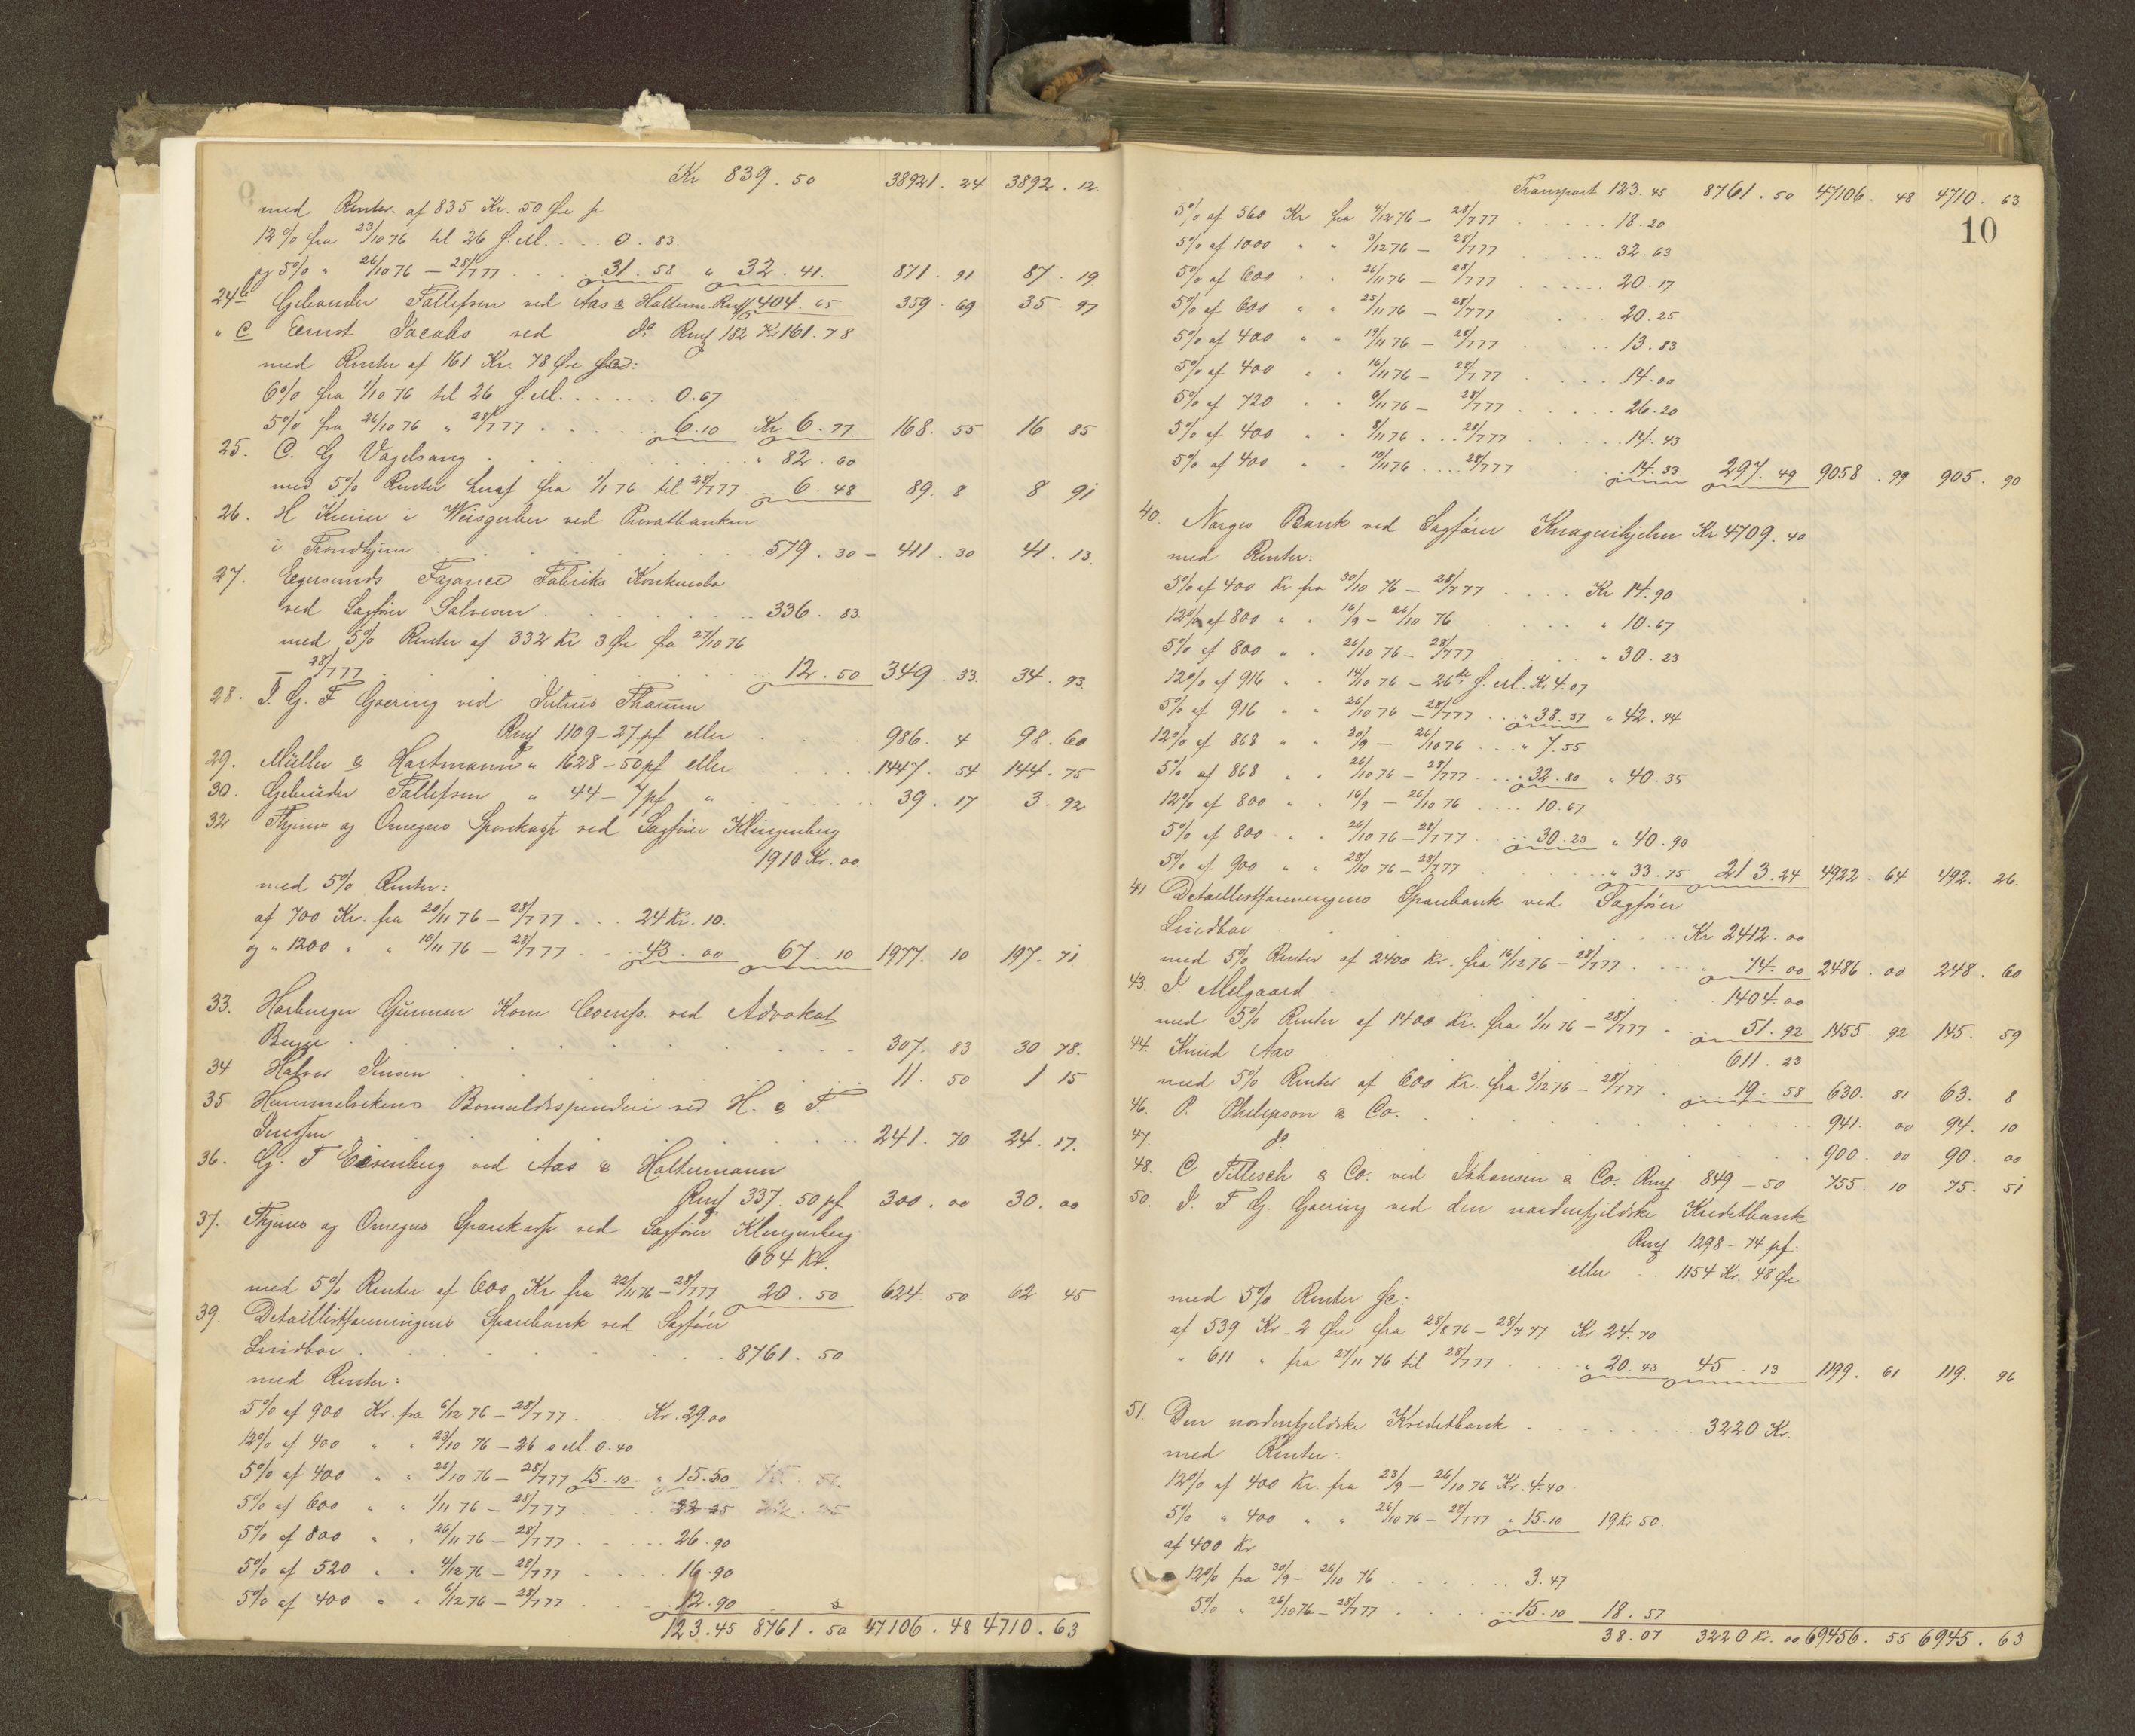 Kr 839. 50 38921. 24 3892. 12.
med Renter af 835 Kr. 50 Øre fr
12% fra 23/10 76 til 26 s. M. . . . 0. 83.
og 5% " 26/10 76 – 28/7 77 . . . 31. 58 " 32. 41. 871. 91 87. 19
24b Gebrüder Tallefsen ved Aas & Halterm. Rmf 404. 65 359. 69 35. 97
" c Ernst Jacobs ved do Rmf 182 Kr 161. 78
med Renter af 161 Kr. 78 Øre
6% fra 1/10 76 til 26 s. M. . . . . . 0. 67
5% fra 26/10 76 " 28/7 77 . . . . . . 6. 10 Kr 6. 77. 168. 55 16 85
25. C. G Vogelsang . . . . . . " 82. 60
med 5% Renter heraf fra 1/1 76 til 28/7 77 . . 6. 48 89. 8 8 91
26. H Kurier i Weisgerber ved Privatbanken
i Trondhjem . . . . . . 579. 30 – 411. 30 41. 13.
27. Egersunds Fajance Fabriks Konkursbo
ved Sagfører Salvesen . . . . . . 336. 83
med 5% Renter af 332 Kr 3 Øre fra 27/10 76
– 28/7 77 . . . . . . 12. 50 349. 33. 34. 93.
28. I. G. F Goering ved Julius Thamm
Rmf 1109 – 27 pf eller . . . 986. 4 98. 60
29. Müller & Hartmann " 1628 – 50 pf eller . . . 1447. 54 144. 75
30. Gebrüder Tallefsen " 44 – 7 pf " . . . 39. 17 3. 92
32 Thjems og Omegns Sparekasse ved Sagfører Klingenberg
1910 Kr. 00
med 5% Renter:
af 700 Kr. fra 20/11 76 – 28/7 77 . . . 24 Kr. 10.
og " 1200 " " 10/11 76 – 28/7 77 . . . 43. 00 67. 10 1977. 10 197. 71
33. Harburger Gummi Kam Co ved Advokat
Buyer . . . . . . 307. 83 30 78.
34 Halvor Jensen . . . . . . 11. 50 1 15
35 Hammelvikens Bomuldsspinderi ved H. & F.
. . . . . . 241. 70 24. 17.
36. G. F Eisenberg ved Aas & Haltermann
Rmf 337. 50 pf 300. 00 30. 00
37. Thjems og Omegns Sparekasse ved Sagfører Klingenberg
604 Kr.
med 5% Renter af 600 Kr fra 22/11 76 – 28/7 77 20. 50 624. 50 62 45
39. Detaillistforeningens Sparebank ved Sagfører
Lindboe . . . . . . 8761. 50
med Renter:
5% af 900 Kr. fra 6/12 76 – 28/7 77 . . . Kr. 29.00
12% af 400 " " 23/10 76 – 26 s M. 0. 40
5% af 400 " " 26/10 76 – 28/7 77 15. 10 – " 15. 50
5% af 600 " " 1/11 76 – 28/7 77 . . . 22 25
5% af 800 " " 26/11 76 – 28/7 77 . . . 26. 90
5% af 520 " " 4/12 76 – 28/7 77 . . . 16. 90
5% af 400 " " 6/12 76 – 28/7 77 . . . 12. 90
123. 45 8761. 50 47106. 48 4710. 63
Transport 123. 45 8761. 50 47106. 48 4710. 63
10
5% af 560 Kr fra 4/12 76 – 28/7 77 . . . . . 18. 20
5% af 1000 " " 3/12 76 – 28/7 77 . . . . . 32. 63
5% af 600 " " 26/11 76 – 28/7 77 . . . . . 20. 17
5% af 600 " " 25/11 76 – 28/7 77 . . . . . 20. 25
5% af 400 " " 19/11 76 – 28/7 77 . . . . 13. 83
5% af 400 " " 16/11 76 – 28/7 77 . . . . 14. 00
5% af 720 " " 6/11 76 – 28/7 77 . . . . . 26. 20
5% af 400 " " 8/11 76 . . . 28/7 77 . . . . . 14. 43
5% af 400 " " 10/11 76 . . . 28/7 77 . . . 14. 33. 297. 49 9058. 99 905. 90
40. Norges Bank ved Sagfører Knagenhjelm Kr 4709. 40
med Renter:
5% af 400 Kr fra 30/10 76 – 28/7 77 . . . . Kr 14. 90
12% af 800 " " 16/9 – 26/10 76 . . . . " 10. 67
5% af 800 " " 26/10 76 – 28/7 77 . . . " 30. 23
12% af 916 " " 14/10 76 – 26de s. M. Kr 4. 07
5% af 916 " " 26/10 76 – 28/7 77 . . " 38. 37 " 42. 44.
12% af 868 " " 30/9 – 26/10 76 . . . " 7. 55
5% af 868 " " 26/10 76 – 28/7 77 . . . 32. 80 " 40. 35
12% af 800 " " 16/9 – 26/10 76 . . . . 10. 67
5% af 800 " " 26/10 76 – 28/7 77 . . . 30. 23 " 40. 90
5% af 900 " " 28/10 76 – 28/7 77 . . . " 33. 75 213. 24 4922. 64 492. 26.
41 Detaillistforeningens Sparebank ved Sagfører
Lindboe . . . . . . Kr 2412. 00
med 5% Renter af 2400 Kr. fra 16/12 76 – 28/7 77 . . . 74. 00 2486. 00 248. 60
43. I. Melgaard . . . . . . 1404. 00
med 5% Renter af 1400 Kr. fra 1/11 76 – 28/7 77 . . . 51. 92 1455. 92 145. 59
44. Knud Aas . . . . . . 611. 23
med 5% Renter af 600 Kr. fra 3/12 76 – 28/7 77 . . . 19. 58 630. 81 63. 8
46. P. Philipson & Co. . . . . . . 941. 00 94. 10
47. do . . . . . . 900. 00 90. 00
48. C Tillisch & Co. ved Johansen & Co. Rmf 849 – 50 755. 10 75. 51
50. I. F G. Goering ved den nordenfjeldske Kreditbank
Rmf 1298 – 74 pf.
eller . . 1154 Kr. 48 Øre
med 5% Renter
af 539 Kr – 2 Øre fra 28/8 76 – 28/7 77 Kr 24. 70
" 611 " fra 27/11 76 til 28/7 77 . . . " 20. 43 45. 13 1199. 61 119. 96
51. Den nordenfjeldske Kreditbank . . . . . . 3220 Kr.
med Renter:
12% af 400 Kr. fra 23/9 – 26/10 76 Kr. 4. 40.
5% " 400 " " 26/10 76 – 28/7 77 " 15. 10 19 Kr 50.
af 400 Kr
12% fra 30/9 – 26/10 76 . . . . . . 3. 47
5% " 26/10 76 – 28/7 77 . . . . . 15. 10 18. 57
38. 07 3220 Kr. 00 69456. 55 6945. 63